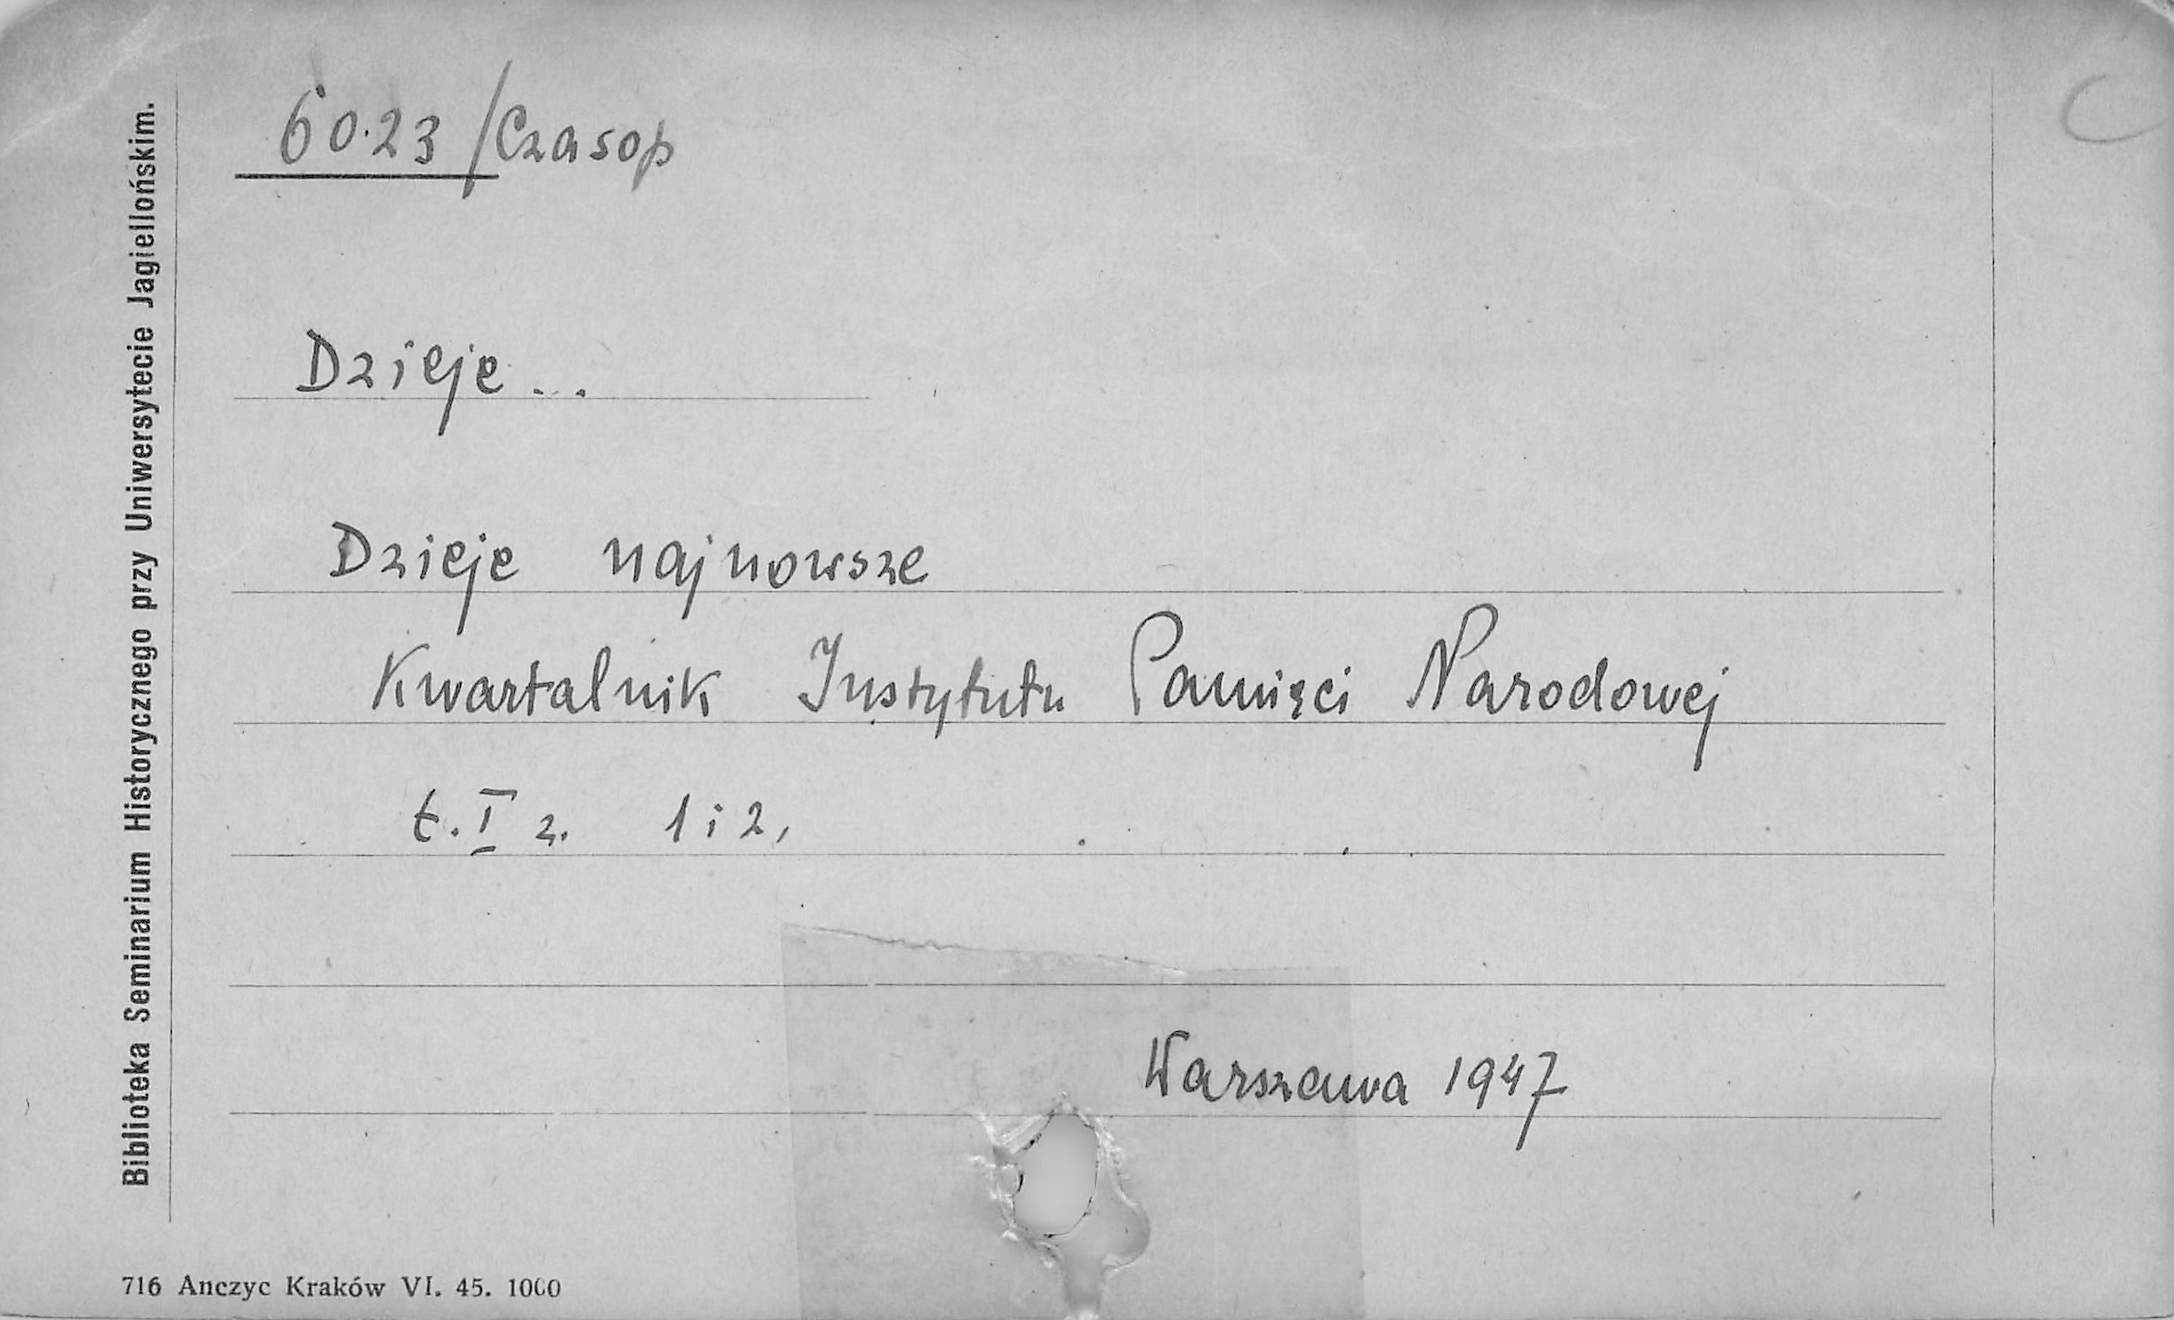 6023/Czasop
C
Dzieje...
Dzieje najnowsze
Kwartalnik Instytutu Pamięci Narodowej
t. I z. 1 i 2,
Warszawa 1947
Biblioteka Seminarium Historycznego przy Uniwersytecie Jagiellońskim.
716 Anczyc Kraków VI. 45. 1000